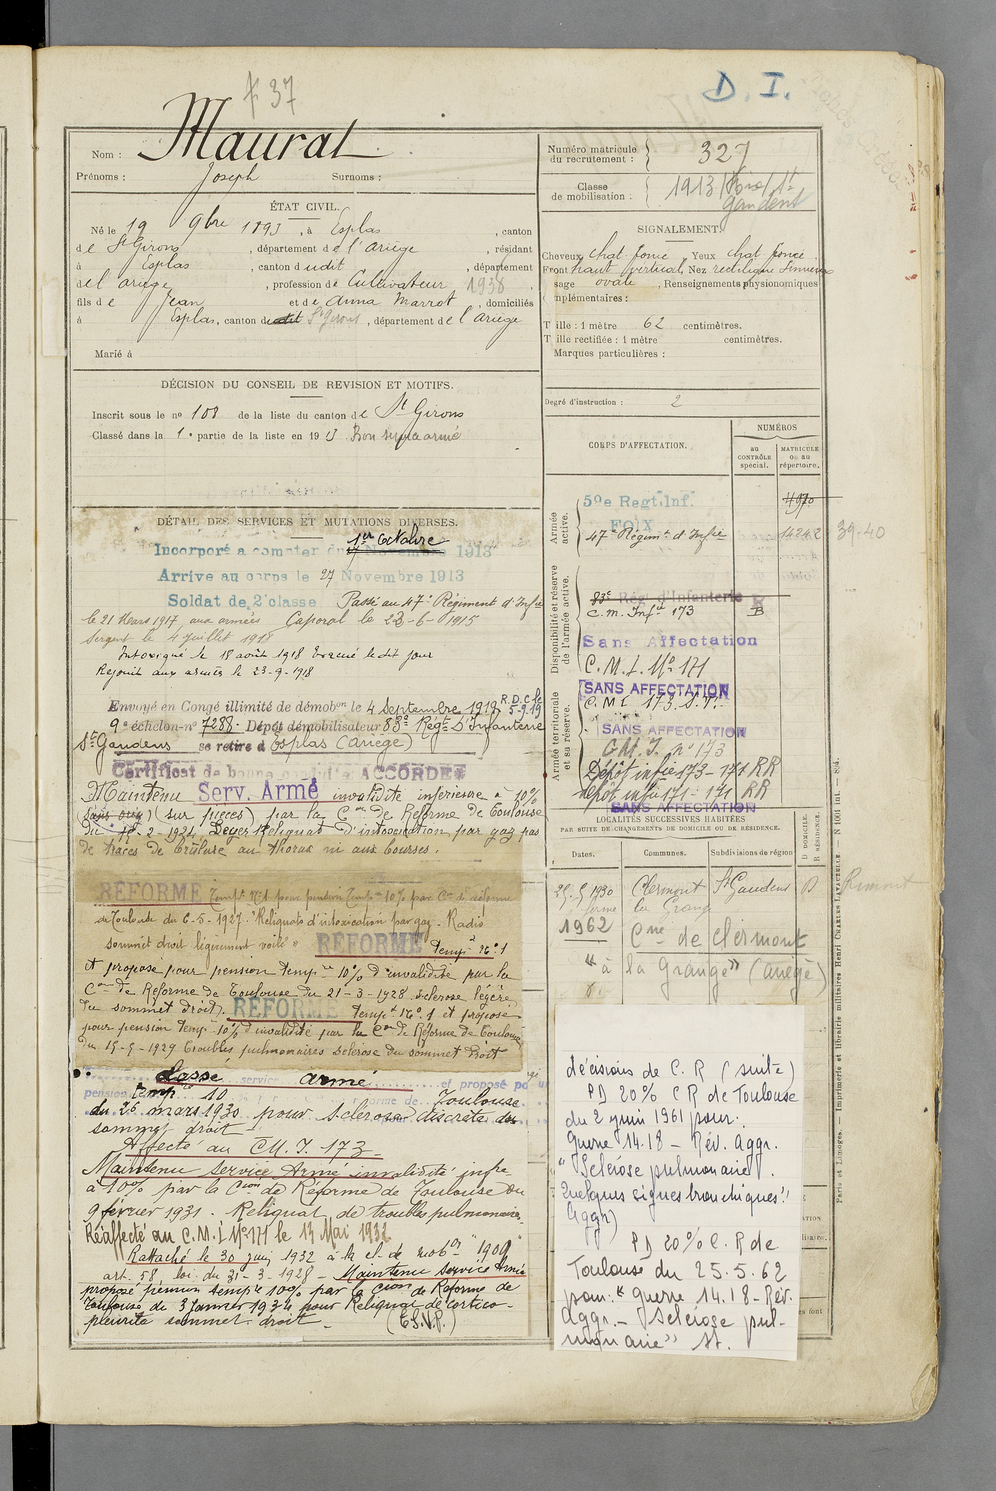 f 37
D. I.
Nom : Maurat
Prénoms : Joseph Surnoms :
ÉTAT CIVIL.
Né le 19 9bre 1893, à Esplas, canton
de St Girons, département de l'Ariège, résidant
à Esplas, canton dudit, département
de l'ariège, profession de Cultivateur 1938,
fils de Jean et de Anna Marrot, domiciliés
à Esplas, canton dudit St Girons, département de l'Ariège
Marié à
DÉCISION DU CONSEIL DE REVISION ET MOTIFS.
Inscrit sous le no 108 de la liste du canton de St Girons
Classé dans la 1e partie de la liste en 1913 Bon service armé
DÉTAIL DES SERVICES ET MUTATIONS DIVERSES.
1er Octobre
Incorporé a compter du Novembre 1913
Arrive au corps le 27 Novembre 1913
Soldat de 2e classe Passé au 47e Régiment d'Infie
le 21 Mars 1917 aux armées Caporal le 23-6-1915
Sergent le 4 juillet 1918
Intoxiqué le 18 août 1918 Evacué ledit jour
Rejoint aux armées le 23-9-1918
Envoyé en Congé illimité de démobon le 4 Septembre 1919 R.D.C. le 5-9-19
9e échelon no 7288 Dépôt démobilisateur 83e Régt D'Infanterie
St Gaudens se retire à Esplas (Ariège)
Certificat de bonne conduite ACCORDÉ
Maintenu Serv. Armé invalidité inférieure à 10%
(sans ) (sur pièces) par la Con de Réforme de Toulouse
du 15-2-1924, Léger Reliquat d'intoxication par gaz pas
de traces de brûlure au thorax ni aux bourses.
RÉFORMÉ Tempt No 1 pour pension Tempre 10% par Con de réforme
de Toulouse du 6-5-1927. "Reliquats d'intoxication par gaz - Radio
sommet droit légèrement voilé" RÉFORMÉ Tempt No 1
et proposé pour pension tempre 10% d'invalidité par la
Con de Réforme de Toulouse du 21-3-1928. Sclérose légère
du sommet droit). RÉFORMÉ Tempt No 1 et proposé
pour pension Temp. 10% d'invalidité par la Con de Réforme de Toulouse
du 15-5-1929 Troubles pulmonaires Sclérose du sommet droit
Classé service armé et proposé pour
pension tempre 10 orme de Toulouse
du 26 mars 1930 pour Sclérose discrète du
sommet droit
Affecté au C.M.I. 173
Maintenu Service Armé invalidité infre
à 10% par la Cion de Réforme de Toulouse du
9 février 1931. Reliquat de troubles pulmonaires.
Réaffecté au C.M.I No 171 le 13 Mai 1932
Rattaché le 30 juin 1932 à la cl. de mobon "1909"
art. 58, loi du 31-3-1928 - Maintenu Service Armé
proposé pension tempre 10% par la Cion de Réforme de
Toulouse du 3 Janvier 1934 pour Reliquat de cortico-
pleurite sommet droit. (E.S.V.P.)
Numéro matricule du recrutement : 327
Classe de mobilisation : 1913 Foix St Gaudens
SIGNALEMENT.
Cheveux chat foncé, Yeux chat foncé
Front haut vertical, Nez rectiligne Sinueux
sage ovale, Renseignements physionomiques
mplémentaires :
Taille : 1 mètre 62 centimètres.
Taille rectifiée : 1 mètre centimètres.
Marques particulières :
Degré d'instruction : 2
CORPS D'AFFECTATION.
NUMÉROS
au CONTRÔLE spécial.
MATRICULE ou au répertoire.
Armée active.
59e Regt. Inf. 4970
FOIX
47e Régimt d'Infie 14242 39-40
Disponibilité et réserve de l'armée active.
83e Rég. d'Infanterie R
C. m. Infie 173 B
Sans Affectation
C. M. I. No 171
Armée territoriale et sa réserve.
SANS AFFECTATION
C. M. I 173 S.T.
SANS AFFECTATION
C. M. I. no 173
Dépôt infie 173 - 171 RR
Dépôt infie 171 - 171 RR
SANS AFFECTATION
LOCALITÉS SUCCESSIVES HABITÉES
PAR SUITE DE CHANGEMENTS DE DOMICILE OU DE RÉSIDENCE.
Dates. Communes. Subdivisions de région D DOMICILE. R RÉSIDENCE.
25-5-1930 Clermont St Gaudens D Rimont
la Grange
1962 Cne de Clermont
"à la Grange" (Ariège)
décisions de C. R (suite)
PD 20% CR de Toulouse
du 2 juin 1961 pour:
Guerre 14.18 - Rév. Aggr.
"Sclérose pulmonaire.
Quelques signes bronchiques"
Aggr)
PD 20% C. R de
Toulouse du 25.5.62
pour: "Guerre 14.18 - Rév.
Aggr. - Sclérose pul-
monaire" St.
Paris et Limoges. — Imprimerie et librairie militaires Henri CHARLES-LAVAUZELLE. — N 1001 int. — 894.